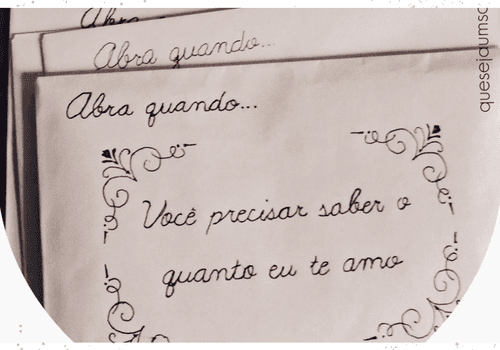 Abra
Abra quando...
Abra quando...
Você precisar saber o
quanto eu te amo
quesejaumsc